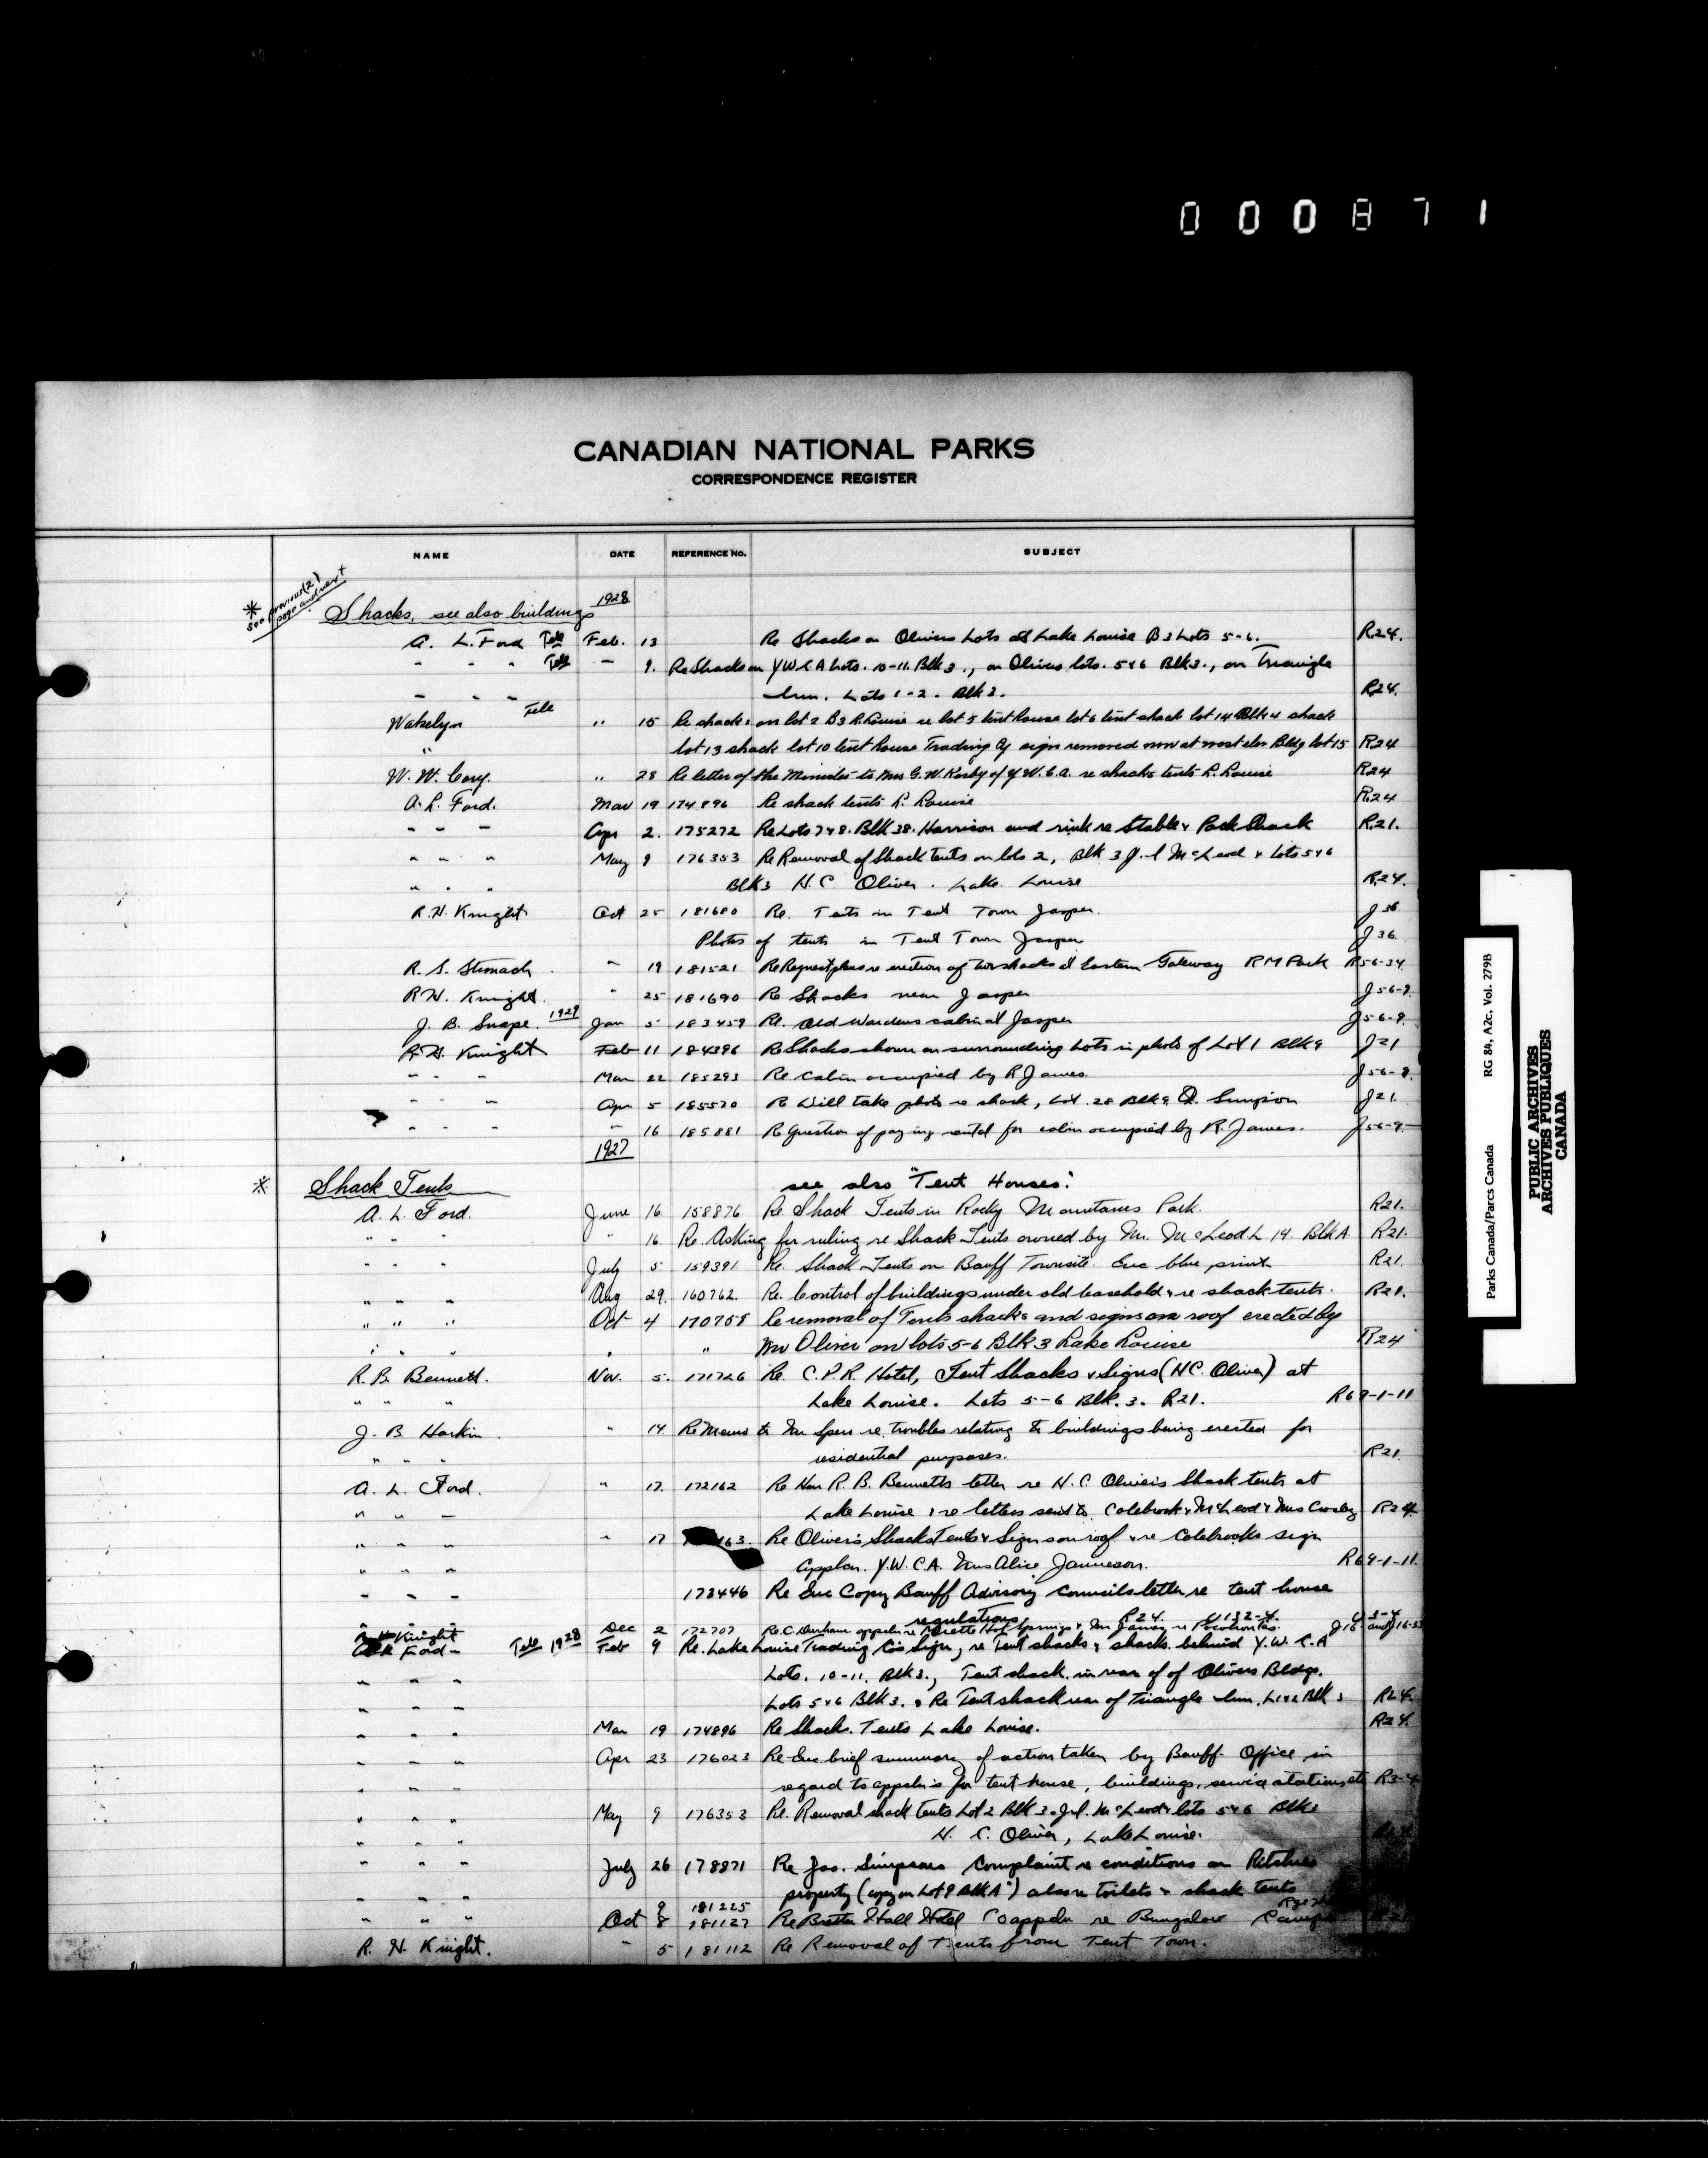 000871
CANADIAN NATIONAL PARKS
CORRESPONDENCE REGISTER
NAME DATE REFERENCE No. SUBJECT
* see previous (2) page and next
Shacks, see also buildings 1928
A. L. Ford Tele Feb. 13 Re Shacks on Olivers Lots at Lake Louise B 3 Lots 5-6. R24.
" " " Tele " 9. Re Shacks on YWCA Lots. 10-11. Blk 3., on Olivers lots. 5&6 Blk 3., on Triangle
" " " Inn. Lots 1-2. Blk 3. R24.
Wakelyn Tele " 15 Re shacks on lot 2 B3 L. Louise re lot 5 tent house lot 6 tent shack lot 14 Blk 4 shack
" lot 13 shack lot 10 tent house Trading Co sign removed now at west elev Bldg lot 15 R24
W. W. Cory. " 28 Re letter of the Minister to Mrs G. W. Kerby of Y.W.C.A. re shacks tents L. Louise R24
A. L. Ford. Mar 19 174896 Re shack tents L. Louise R24
" " " Apr 2. 175272 Re Lots 7&8. Blk 38. Harrison and rink re Stable & Pack Shack R21.
" " " May 9 176353 Re Removal of Shack Tents on lots 2, Blk 3 J. McLeod & Lots 5&6
" " " Blk 3 H. C. Oliver. Lake Louise R24.
R. H. Knight Oct 25 181680 Re. Tents in Tent Town Jasper. J36
Photos of tents in Tent Town Jasper J36.
R. S. Stronach " 19 181521 Re Request plans re erection of two shacks at Eastern Gateway R M Park R56-34
R. H. Knight. " 25 181690 Re Shacks near Jasper J56-9
J. B. Snape. 1929 Jan 5 183459 Re. Old Wardens cabin at Jasper J56-9.
R. H. Knight Feb 11 184396 Re Shacks shown on surrounding Lots in photo of Lot 1 Blk 9 J21
" " " Mar 22 185293 Re Cabin occupied by R. James. J56-9.
" " " Apr 5 185570 Re Will take photo re shack, Lot 28 Blk 9. Simpson J21.
" " " " 16 185881 Re Question of paying rental for cabin occupied by R. James. J56-9.
1927
* Shack Tents see also "Tent Houses".
A. L. Ford. June 16 158876 Re Shack Tents in Rocky Mountains Park. R21.
" " " " 16. Re. Asking for ruling re Shack Tents owned by Mr. McLeod L 19. Blk A R21.
" " " July 5 159391 Re. Shack Tents on Banff Townsite. Enc blue print R21.
" " " Aug 29. 160762. Re. Control of buildings under old leasehold & re shack tents. R21.
" " " Oct 4 170758 Re removal of Tents shacks and signs on roof erected by
" " " " " Mr Oliver on lots 5-6 Blk 3 Lake Louise R24
R. B. Bennett. Nov. 5. 171726 Re. C.P.R. Hotel, Tent Shacks & Signs (H.C. Oliver) at
" " " Lake Louise. Lots 5-6 Blk. 3. R21. R69-1-11
J. B. Harkin. " 14 Re Memo to Mr Spero re troubles relating to buildings being erected for
" " " residential purposes. R21.
A. L. Ford. " 17. 172162 Re Hon R. B. Bennetts letter re H. C. Oliver's Shack tents at
" " " Lake Louise & re letters send to Colebrook & McLeod & Mrs Crosby R24
" " " " 17 163. Re Olivers Shacks Tents & Sign on roof & re Colebrooks sign
" " " Appln. Y.W.C.A. Mrs Alice Jamieson. R69-1-11.
" " " 173446 Re Enc Copy Banff Advisory Councils letter re tent house
regulations. R24. U132-4. U3-4
R. H. Knight Dec 2 172707 Re. C. Durham appln re Miette Hot Springs & Mr James re Pocohontas. J16- and J16-53
A. L. Ford Tele 1928 Feb 9 Re. Lake Louise Trading Co's Sign, re Tent shacks & shacks behind Y.W.C.A
" " " Lots. 10-11. Blk 3., Tent shack in rear of of Olivers Bldgs.
" " " Lots 5&6 Blk 3. & Re Tent shack rear of triangle Inn. L1&2 Blk 3 R24.
" " " Mar 19 174896 Re Shack. Tents Lake Louise. R24.
" " " Apr 23 176023 Re Enc. brief summary of action taken by Banff Office in
" " " regard to appln's for tent house, buildings, service stations etc R3-4
" " " May 9 176353 Re. Removal shack tents Lot 2 Blk 3. J. McLeod & lots 5&6 Blk 3
" " " H. C. Oliver, Lake Louise. R24
" " " July 26 178871 Re Jas. Simpsons Complaint re conditions on Ritchies
" " " property (copy on Lot 9 Blk A") also re toilets & shack tents
9 181225
" " " Oct 8 181127 Re Bretton Hall Hotel Co appln re Bungalow Camp
R. H. Knight. " 5 181112 Re Removal of Tents from Tent Town.
Parks Canada/Parcs Canada RG 84, A2c, Vol. 279B
PUBLIC ARCHIVES
ARCHIVES PUBLIQUES
CANADA